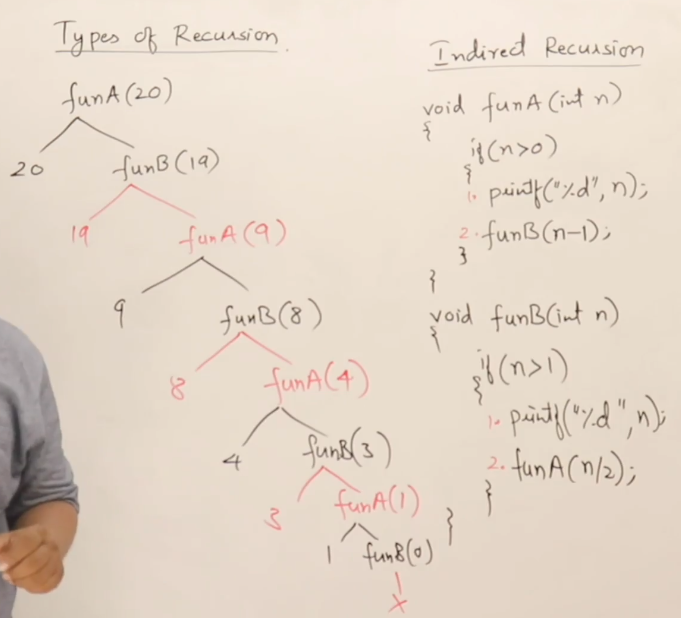 Types of Recursion.
funA(20)
20 funB(19)
19 funA(9)
9 funB(8)
8 funA(4)
4 funB(3)
3 funA(1)
1 funB(0)
x
Indirect Recursion
void funA(int n)
{
if(n>0)
{
1. printf("%d", n);
2. funB(n-1);
}
}
void funB(int n)
{
if(n>1)
{
1. printf("%d", n);
2. funA(n/2);
}
}